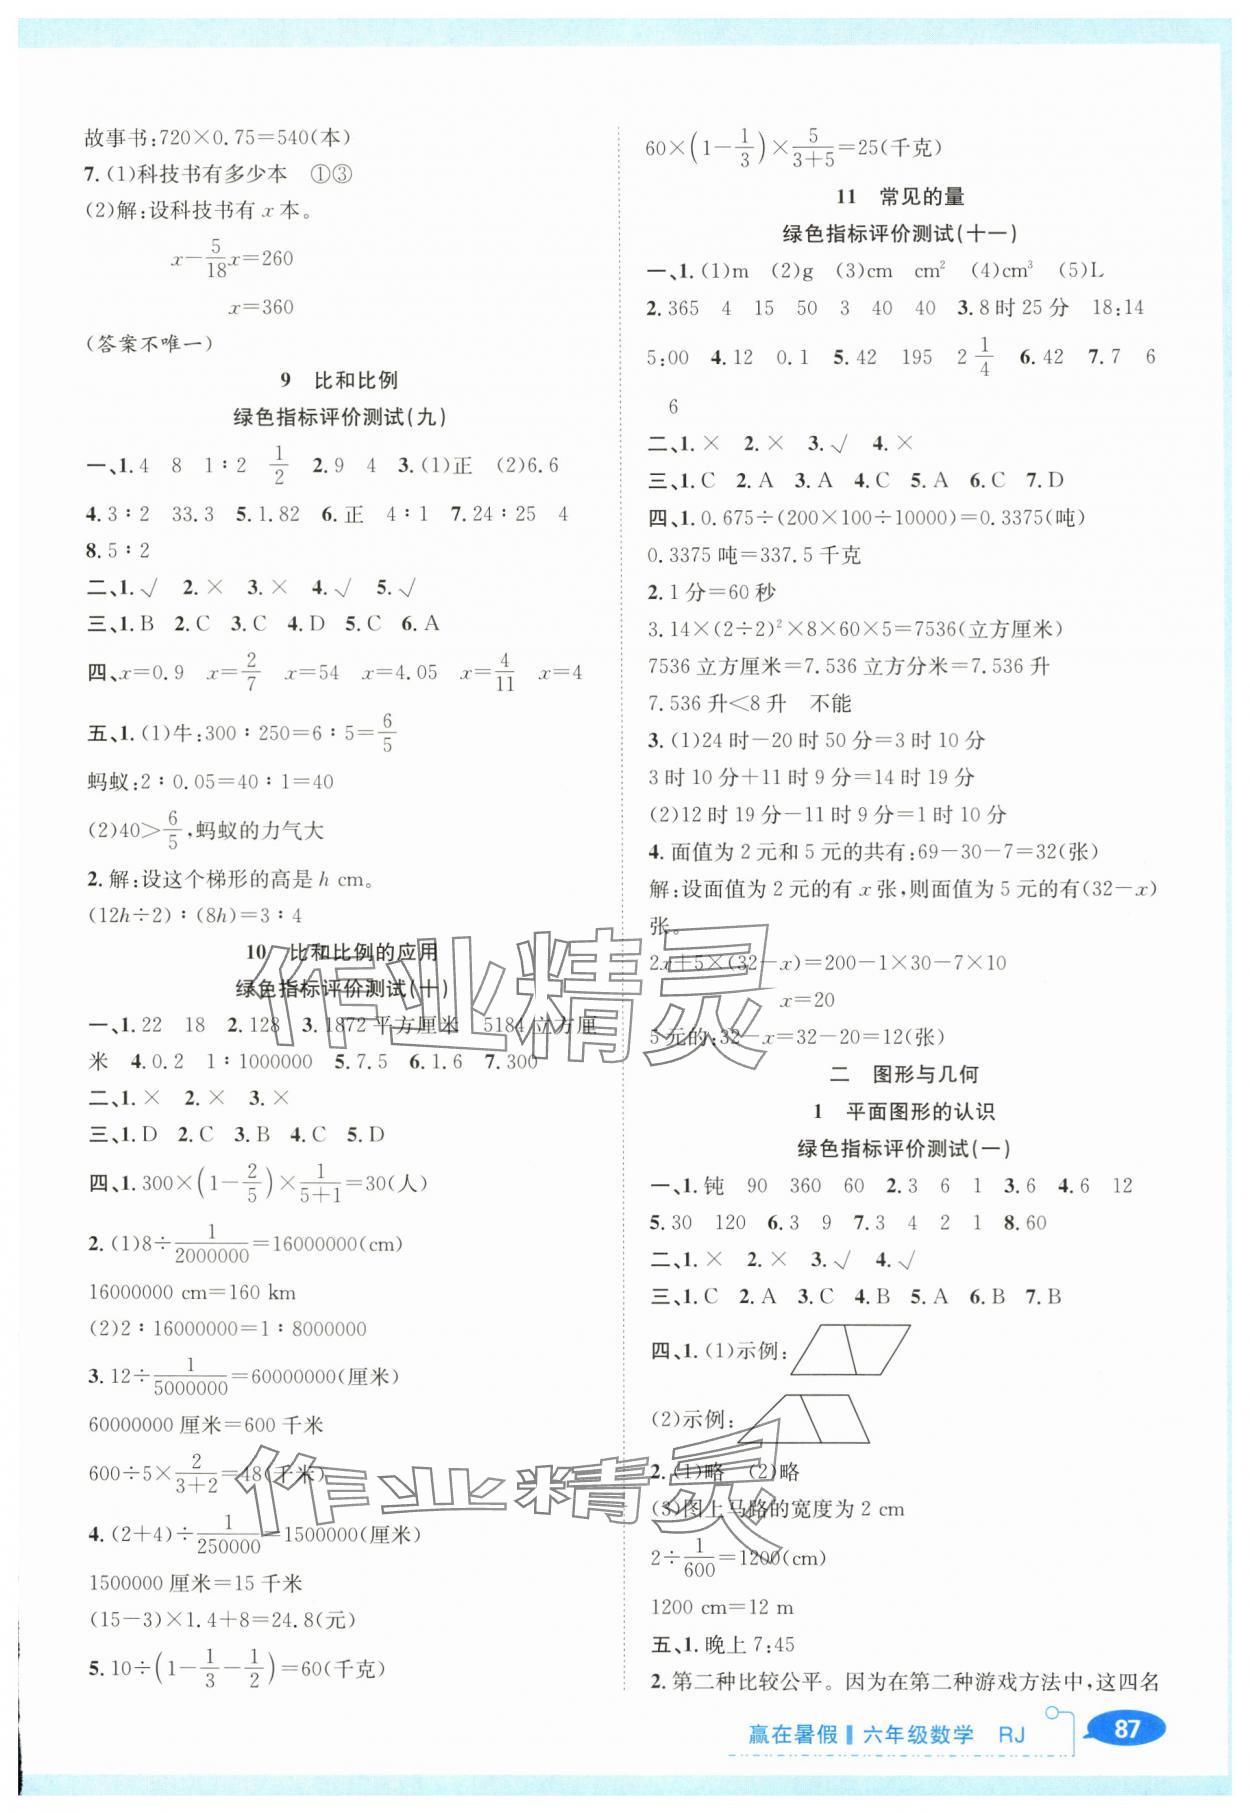 故事书:720×0.75=540(本)
7.(1)科技书有多少本 ①③
(2)解:设科技书有 x 本。
x−5/18x=260
x=360
(答案不唯一)
9 比和比例
绿色指标评价测试(九)
一、1.4 8 1∶2 1/2 2.9 4 3.(1)正 (2)6.6
4.3∶2 33.3 5.1.82 6.正 4∶1 7.24∶25 4
8.5∶2
二、1.√ 2.× 3.× 4.√ 5.√
三、1.B 2.C 3.C 4.D 5.C 6.A
四、x=0.9 x=2/7 x=54 x=4.05 x=4/11 x=4
五、1.(1)牛:300∶250=6∶5=6/5
蚂蚁:2∶0.05=40∶1=40
(2)40>6/5,蚂蚁的力气大
2.解:设这个梯形的高是 h cm。
(12h÷2)∶(8h)=3∶4
10 比和比例的应用
绿色指标评价测试(十)
一、1.22 18 2.128 3.1872平方厘米 5184立方厘
米 4.0.2 1∶1000000 5.7.5 6.1.6 7.300
二、1.× 2.× 3.×
三、1.D 2.C 3.B 4.C 5.D
四、1.300×(1−2/5)×1/(5+1)=30(人)
2.(1)8÷1/2000000=16000000(cm)
16000000 cm=160 km
(2)2∶16000000=1∶8000000
3.12÷1/5000000=60000000(厘米)
60000000 厘米=600 千米
600÷5×2/(3+2)=48(千米)
4.(2+4)÷1/250000=1500000(厘米)
1500000 厘米=15 千米
(15−3)×1.4+8=24.8(元)
5.10÷(1−1/3−1/2)=60(千克)
60×(1−1/3)×5/(3+5)=25(千克)
11 常见的量
绿色指标评价测试(十一)
一、1.(1)m (2)g (3)cm cm² (4)cm³ (5)L
2.365 4 15 50 3 40 40 3.8时25分 18:14
5:00 4.12 0.1 5.42 195 2 1/4 6.42 7.7 6
6
二、1.× 2.× 3.√ 4.×
三、1.C 2.A 3.A 4.C 5.A 6.C 7.D
四、1.0.675÷(200×100÷10000)=0.3375(吨)
0.3375 吨=337.5 千克
2.1 分=60 秒
3.14×(2÷2)²×8×60×5=7536(立方厘米)
7536 立方厘米=7.536 立方分米=7.536 升
7.536 升<8 升 不能
3.(1)24 时−20 时 50 分=3 时 10 分
3 时 10 分+11 时 9 分=14 时 19 分
(2)12 时 19 分−11 时 9 分=1 时 10 分
4.面值为 2 元和 5 元的共有:69−30−7=32(张)
解:设面值为 2 元的有 x 张,则面值为 5 元的有(32−x)
张。
2x+5×(32−x)=200−1×30−7×10
x=20
5 元的:32−x=32−20=12(张)
二 图形与几何
1 平面图形的认识
绿色指标评价测试(一)
一、1.钝 90 360 60 2.3 6 1 3.6 4.6 12
5.30 120 6.3 9 7.3 4 2 1 8.60
二、1.× 2.× 3.√ 4.√
三、1.C 2.A 3.C 4.B 5.A 6.B 7.B
四、1.(1)示例:
(2)示例:
2.(1)略 (2)略
(3)图上马路的宽度为 2 cm
2÷1/600=1200(cm)
1200 cm=12 m
五、1.晚上 7:45
2.第二种比较公平。因为在第二种游戏方法中,这四名
赢在暑假 六年级数学 RJ 87
作业精灵
作业精灵